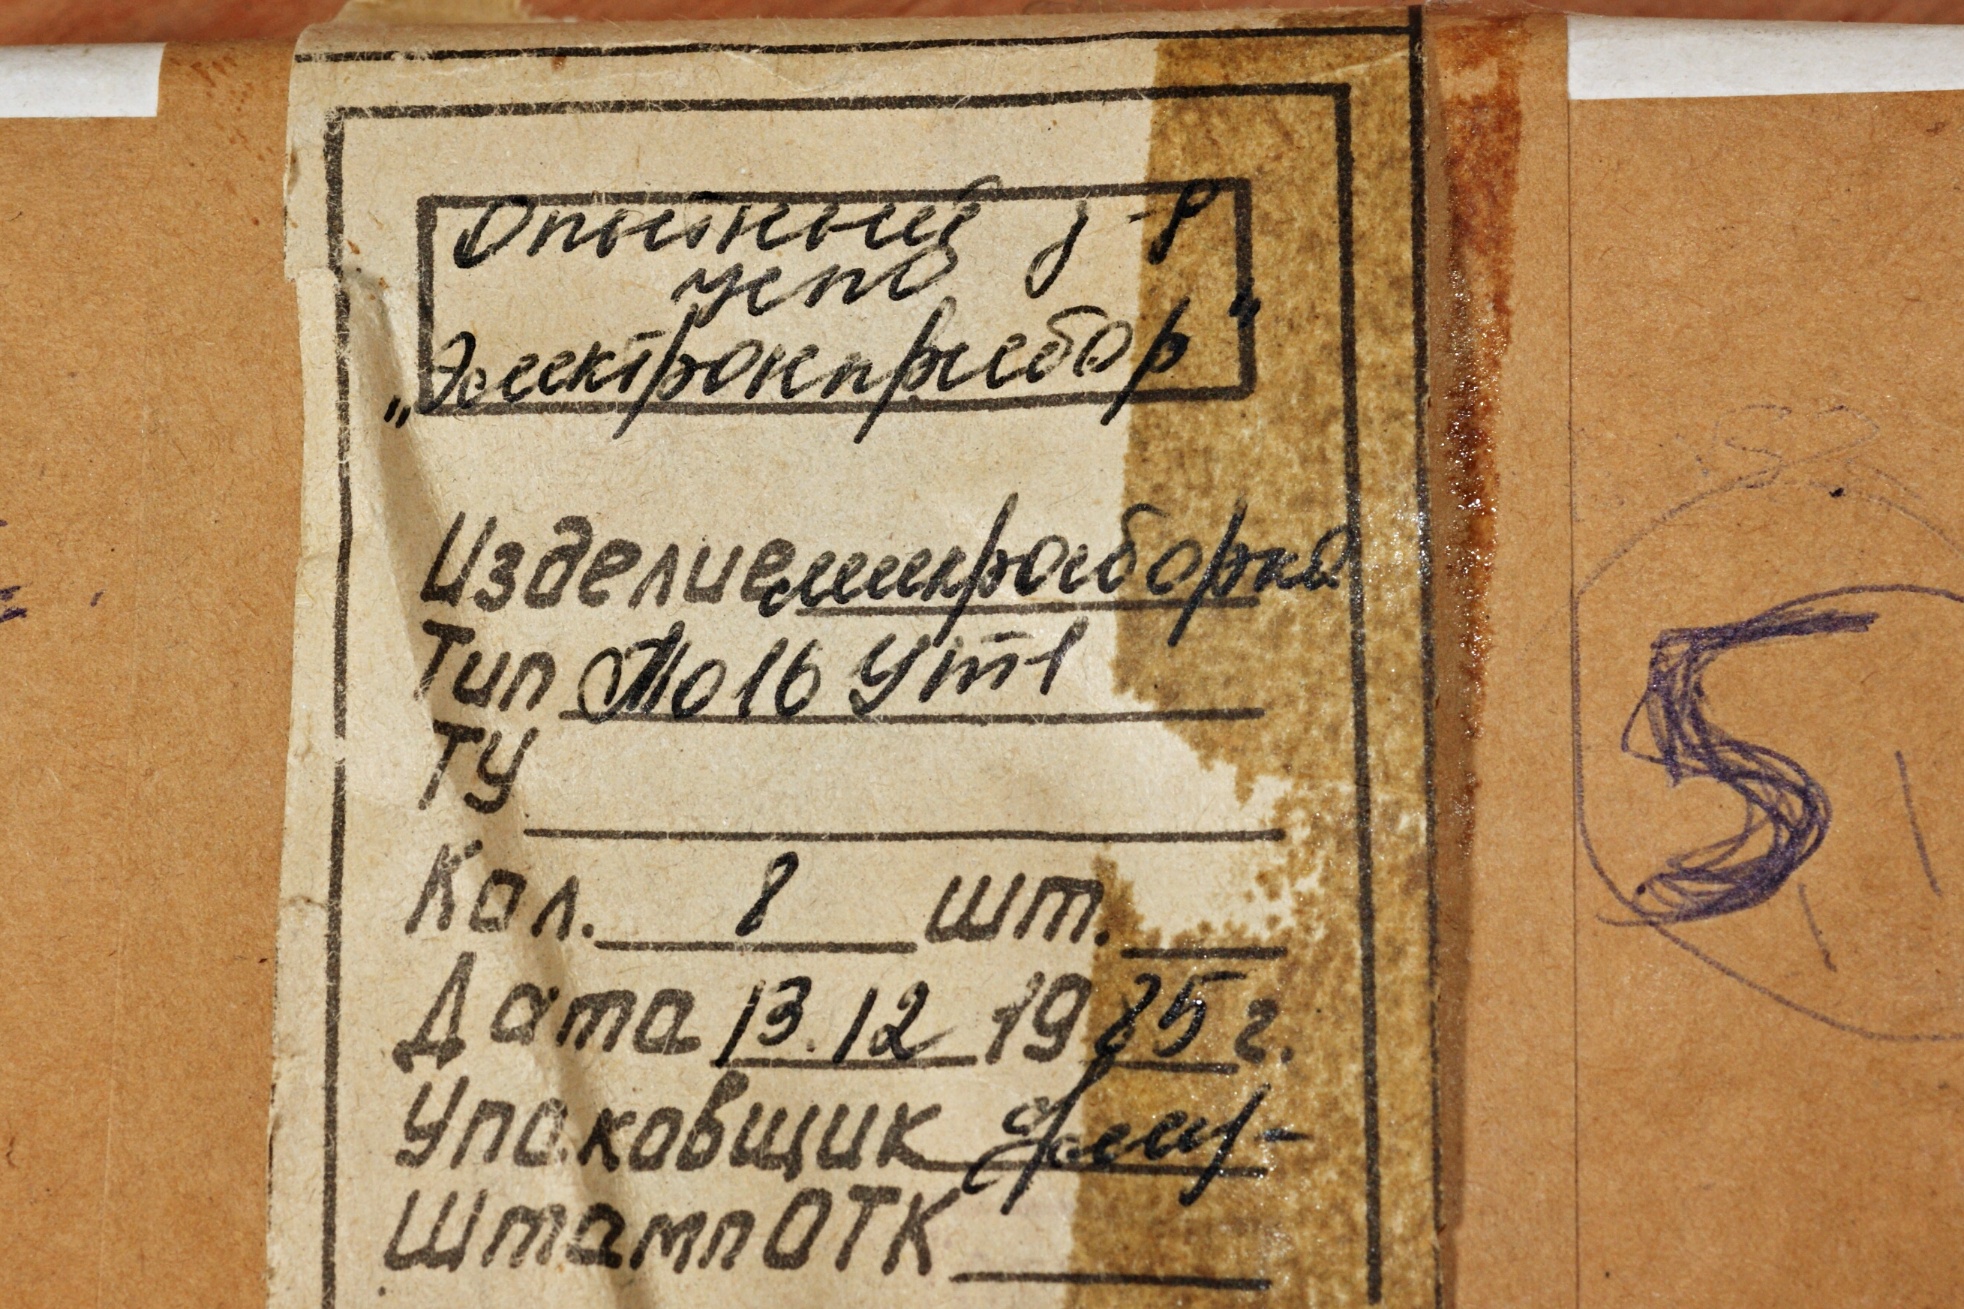 Опытный з-д
УСПО
„Электронприбор"
Изделие микросборка
Тип Мо16 Ут1
ТУ
Кол. 8 шт.
Дата 13.12 1985 г.
Упаковщик
Штамп ОТК
5